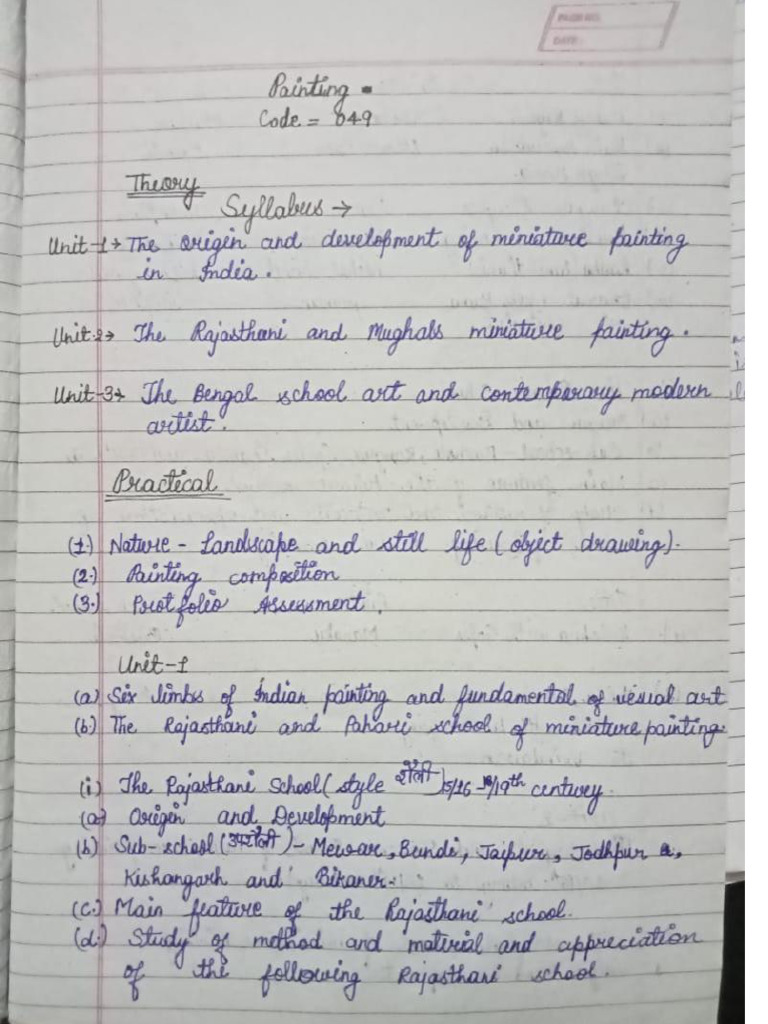 PAGE NO.
DATE:
Painting
Code = 049
Theory
Syllabus →
Unit-1→ The origin and development of miniature painting
in India.
Unit-2→ The Rajasthani and Mughals miniature painting.
Unit-3→ The Bengal school art and contemparary modern
artist.
Practical
(1.) Nature - Landscape and still life (object drawing).
(2.) Painting composition
(3.) Protfolio Assessment.
Unit-1
(a) Six limbs of Indian painting and fundamental of visual art
(b) The Rajasthani and Pahari school of miniature painting.
(i) The Rajasthani School (style शैली) 15/16 - 18/19th century.
(a) Origin and Development
(b) Sub-school (उपशैली) - Mewar, Bundi, Jaipur, Jodhpur,
Kishangarh and Bikaner.
(c.) Main feature of the Rajasthani school.
(d.) Study of method and material and appreciation
of the following Rajasthani school.